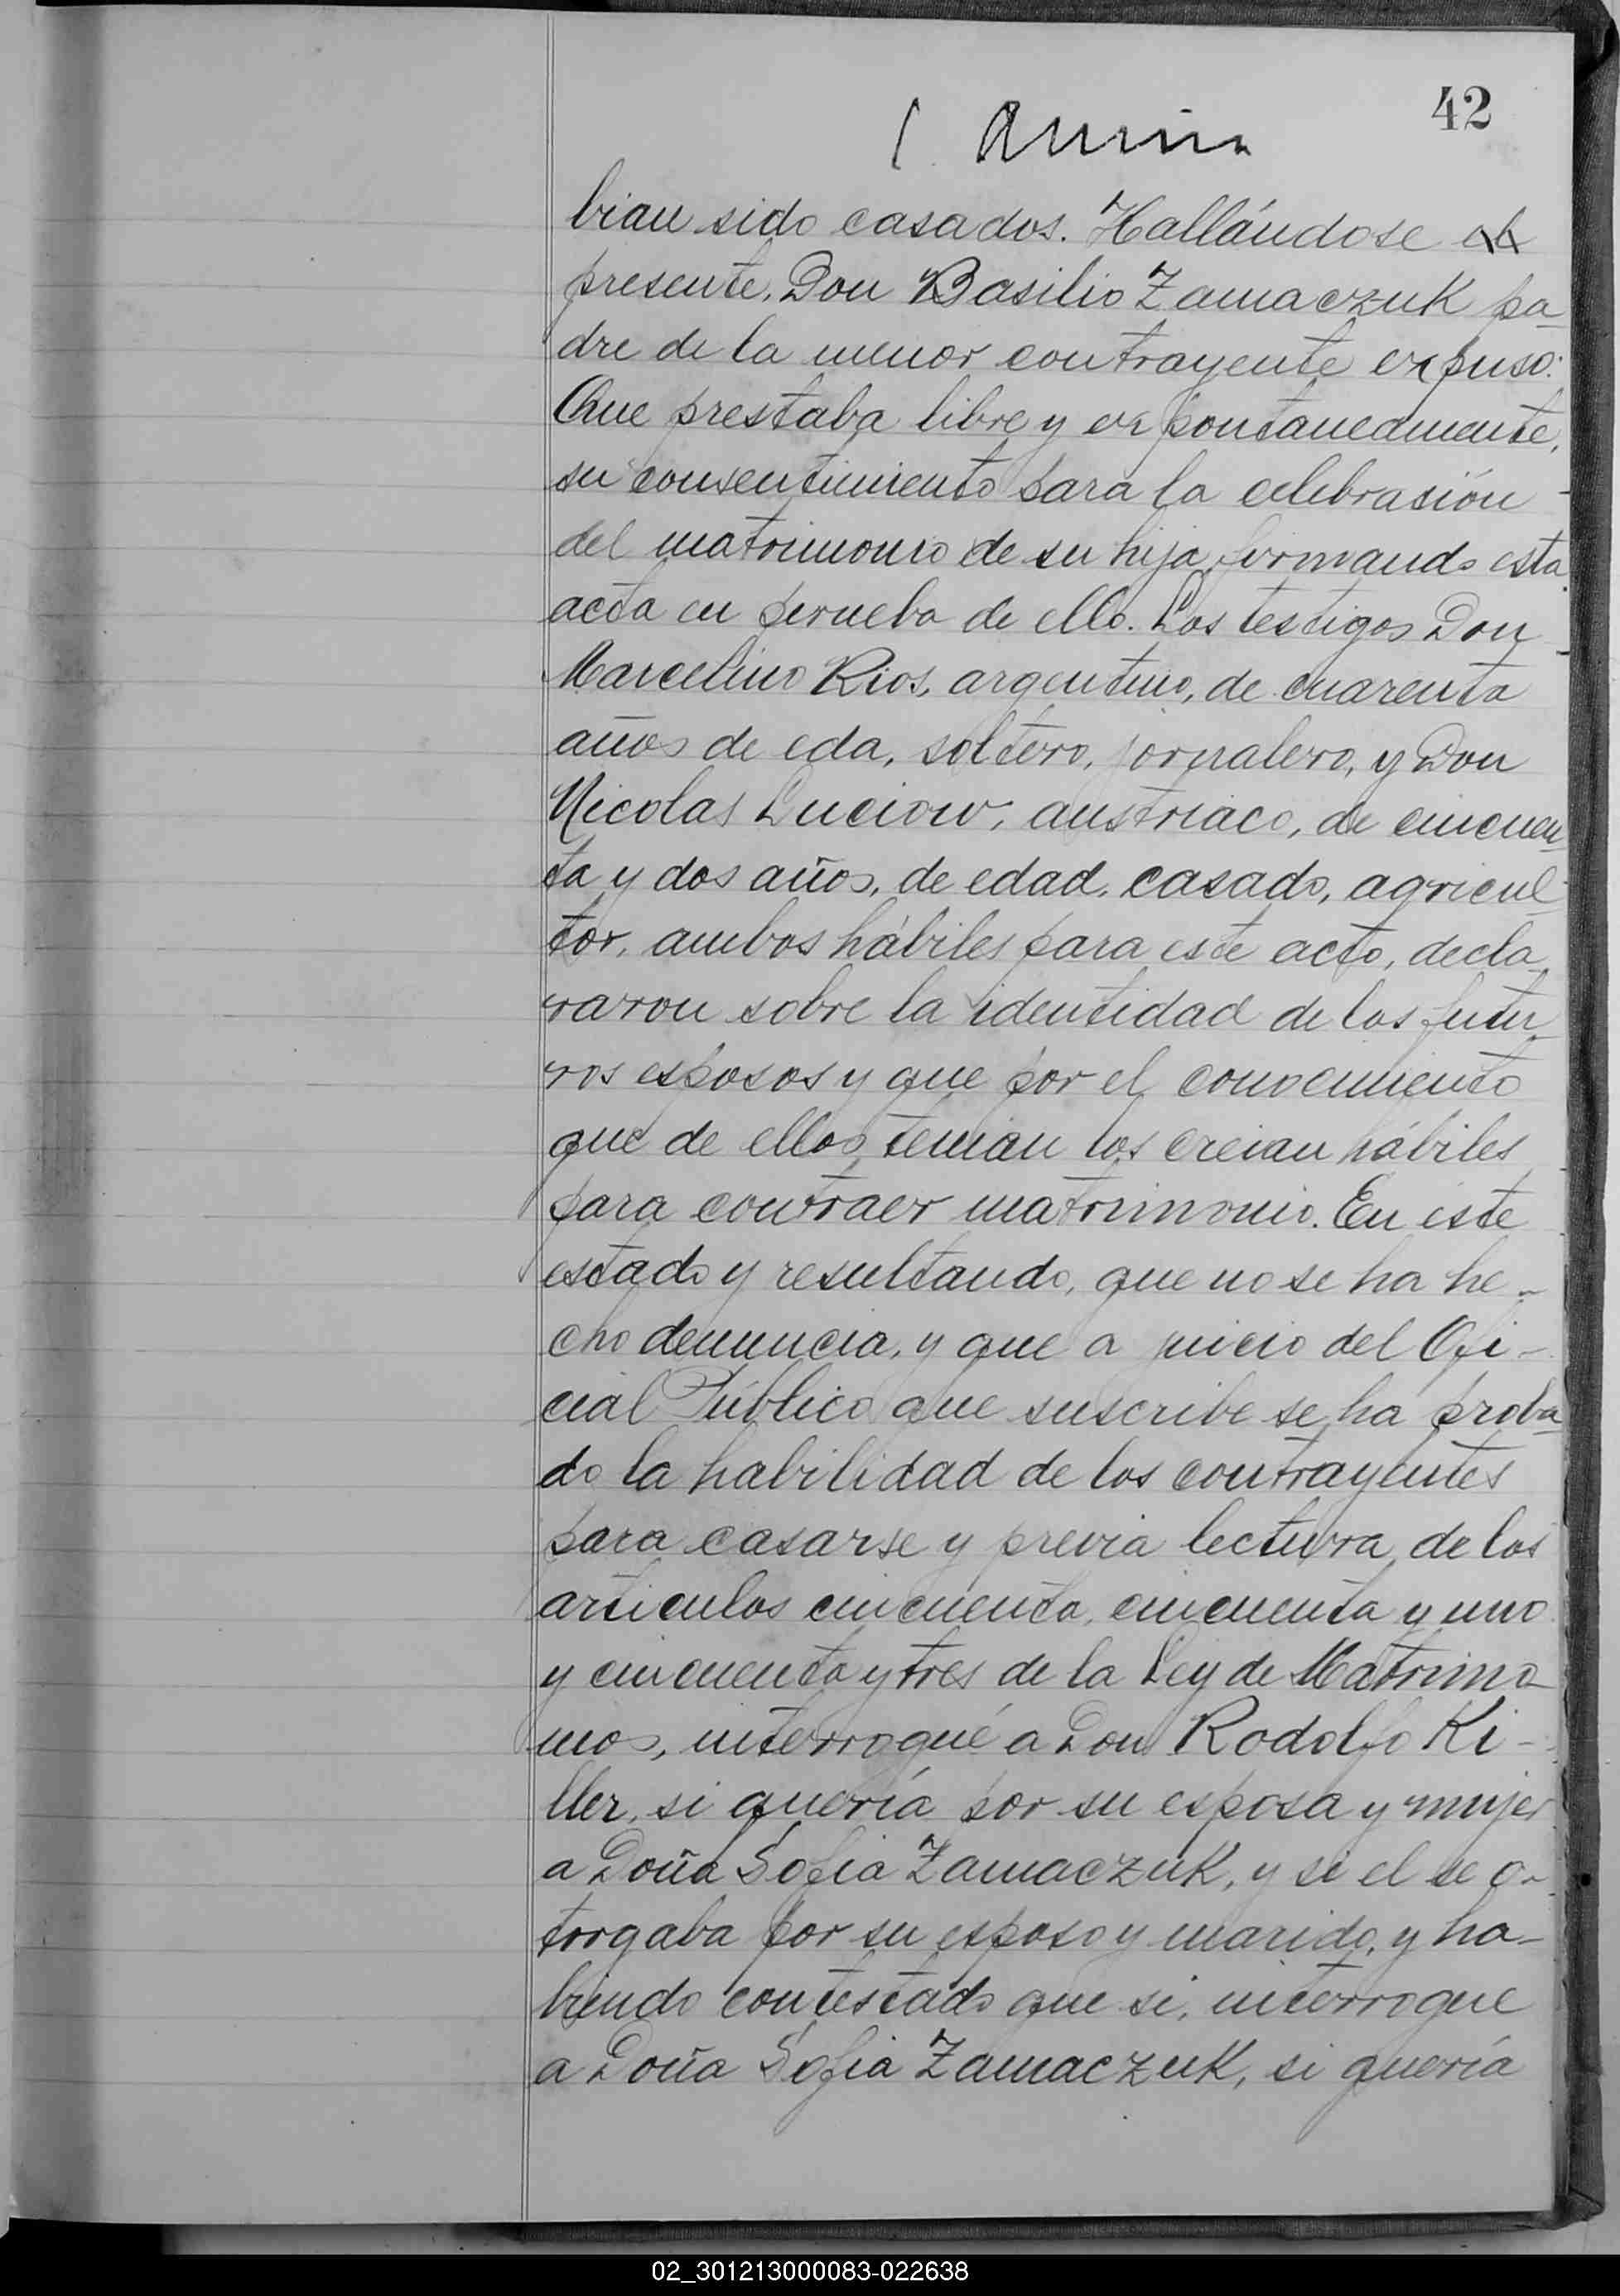 42
bian sido casados. Hallándose el
presente, Don Basilio Zamaczuk pa-
dre de la menor contrayente expuso:
Que prestaba libre y expontaneamente,
su consentimiento para la celebrasión
del matrimonio de su hija firmando esta
acta en perueba de ello. Los testigos Don
Marcelino Rios, argentino, de cuarenta
años de eda, soltero, jornalero, y Don
Nicolas Luciow, austriaco, de cincuen-
ta y dos años, de edad, casado, agricul-
tor, ambos hábiles para este acto, decla-
raron sobre la identidad de los futu-
ros esposos y que por el conocimiento
que de ellos tenian los creian hábiles
para contraer matrimonio. En este
estado y resultando, que no se ha he-
cho denuncia, y que a juicio del Ofi-
cial Público que suscribe se ha proba-
do la habilidad de los contrayentes
para casarse y previa lectura de los
articulos cincuenta, cincuenta y uno
y cincuenta y tres de la Ley de Matrimo-
nios, interrogué a Don Rodolfo Ki-
ller, si quería por su esposa y mujer
a Doña Sofia Zamaczuk, y si el se o-
torgaba por su esposo y marido, y ha-
biendo contestado que si, interrogue
a Doña Sofia Zamaczuk, si quería
02_301213000083-022638